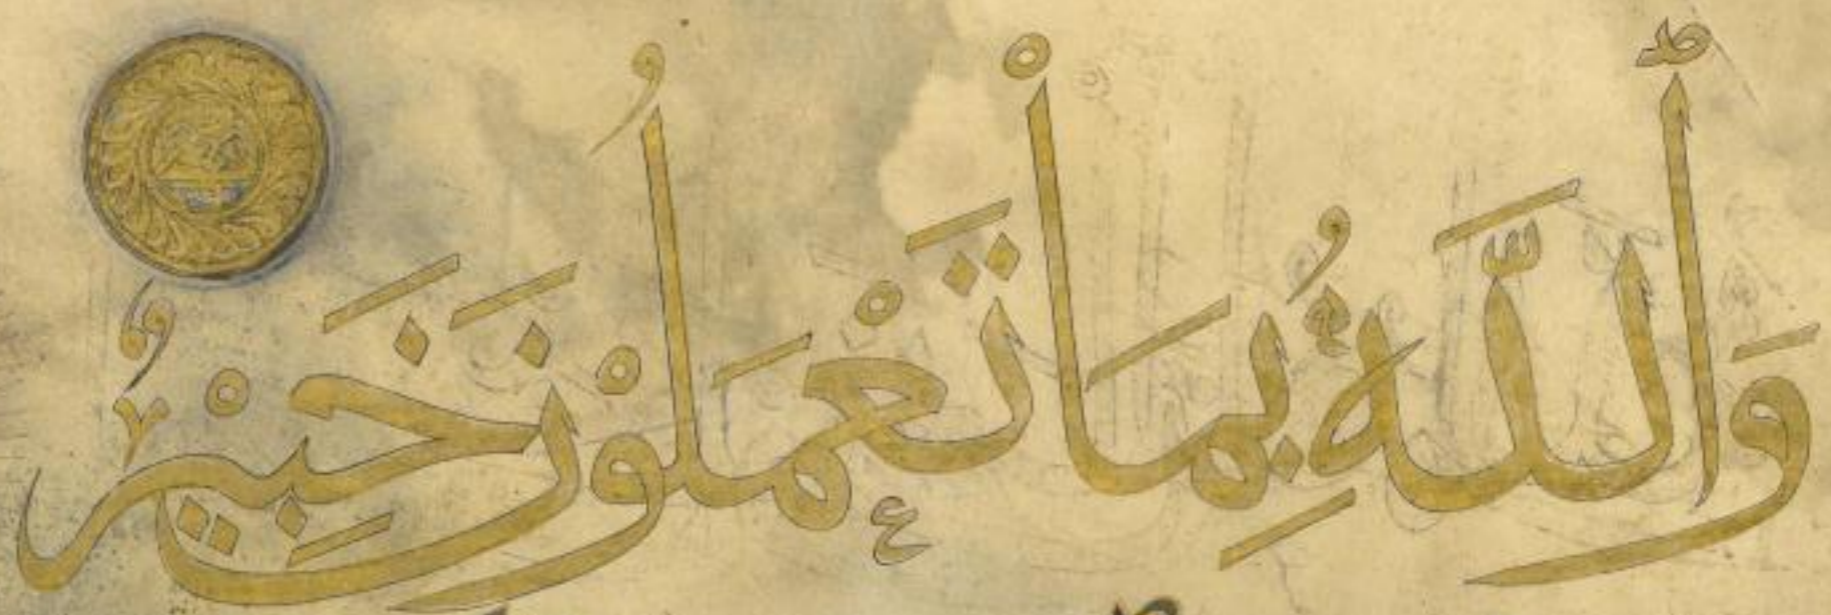 وَٱللَّهُ بِمَا تَعْمَلُونَ خَبِيرٌ